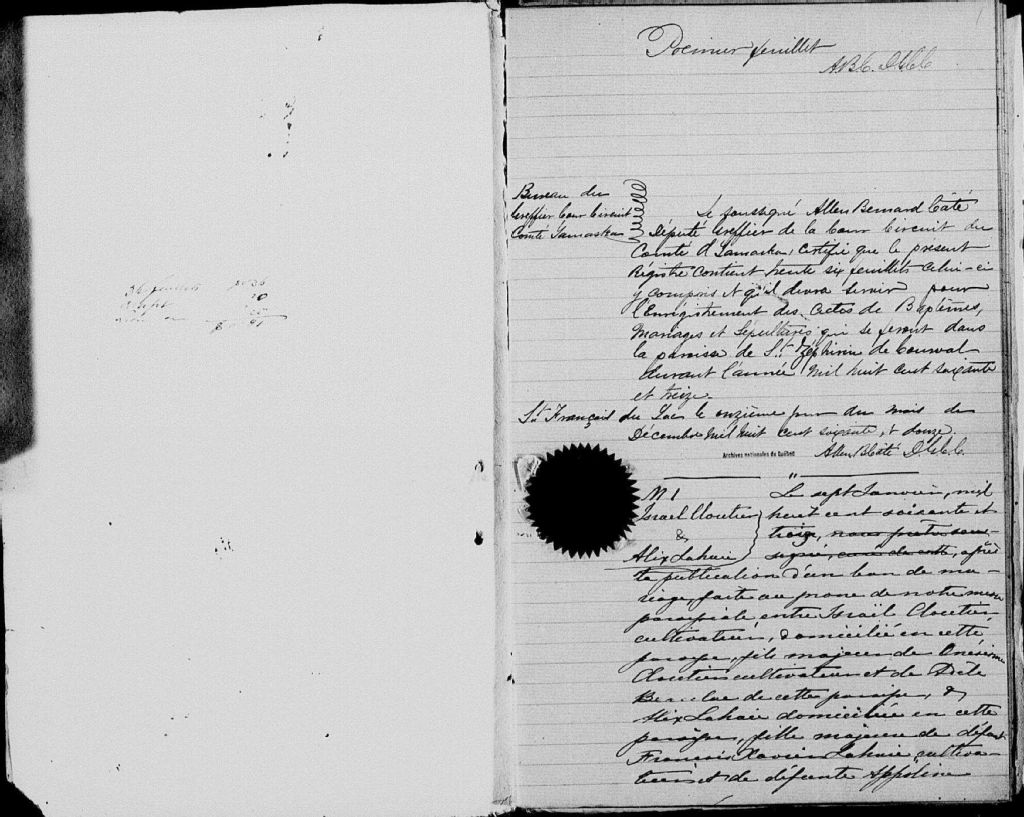 36 feuillets
Premier feuillet
A.B.C. D.G.C.C.
Bureau du
Greffier Cour Circuit
Comté Yamaska
Je soussigné Allen Bernard Côté
Député Greffier de la Cour Circuit du
Comté d'Yamaska, certifie que le présent
Régistre contient trente six feuillets celui-ci
y compris et qu'il devra servir pour
l'Enrégistrement des Actes de Baptêmes,
Mariages et Sépultures qui se feront dans
la paroisse de St. Zéphirin de Courval
durant l'année mil huit cent soixante
et treize.
St. François du Lac le onzième jour du mois de
Décembre mil huit cent soixante & douze.
Archives nationales du Québec
Allen B. Côté D.G.C.C.
M 1
Israel Cloutier
&
Alix Lahaie
Le sept Janvier, mil
huit cent soixante et
treize, nous prêtre sous-
signé, curé de cette, après
la publication d'un ban de ma-
riage, faite au prone de notre messe
paroissiale entre Israël Cloutier,
cultivateur, domicilié en cette
paroisse, fils majeur de Onésime
Cloutier cultivateur et de
de cette paroisse, &
Alix Lahaie domiciliée en cette
paroisse, fille majeure de défunt
François Xavier Lahaie cultiva-
teur et de défunte Appoline